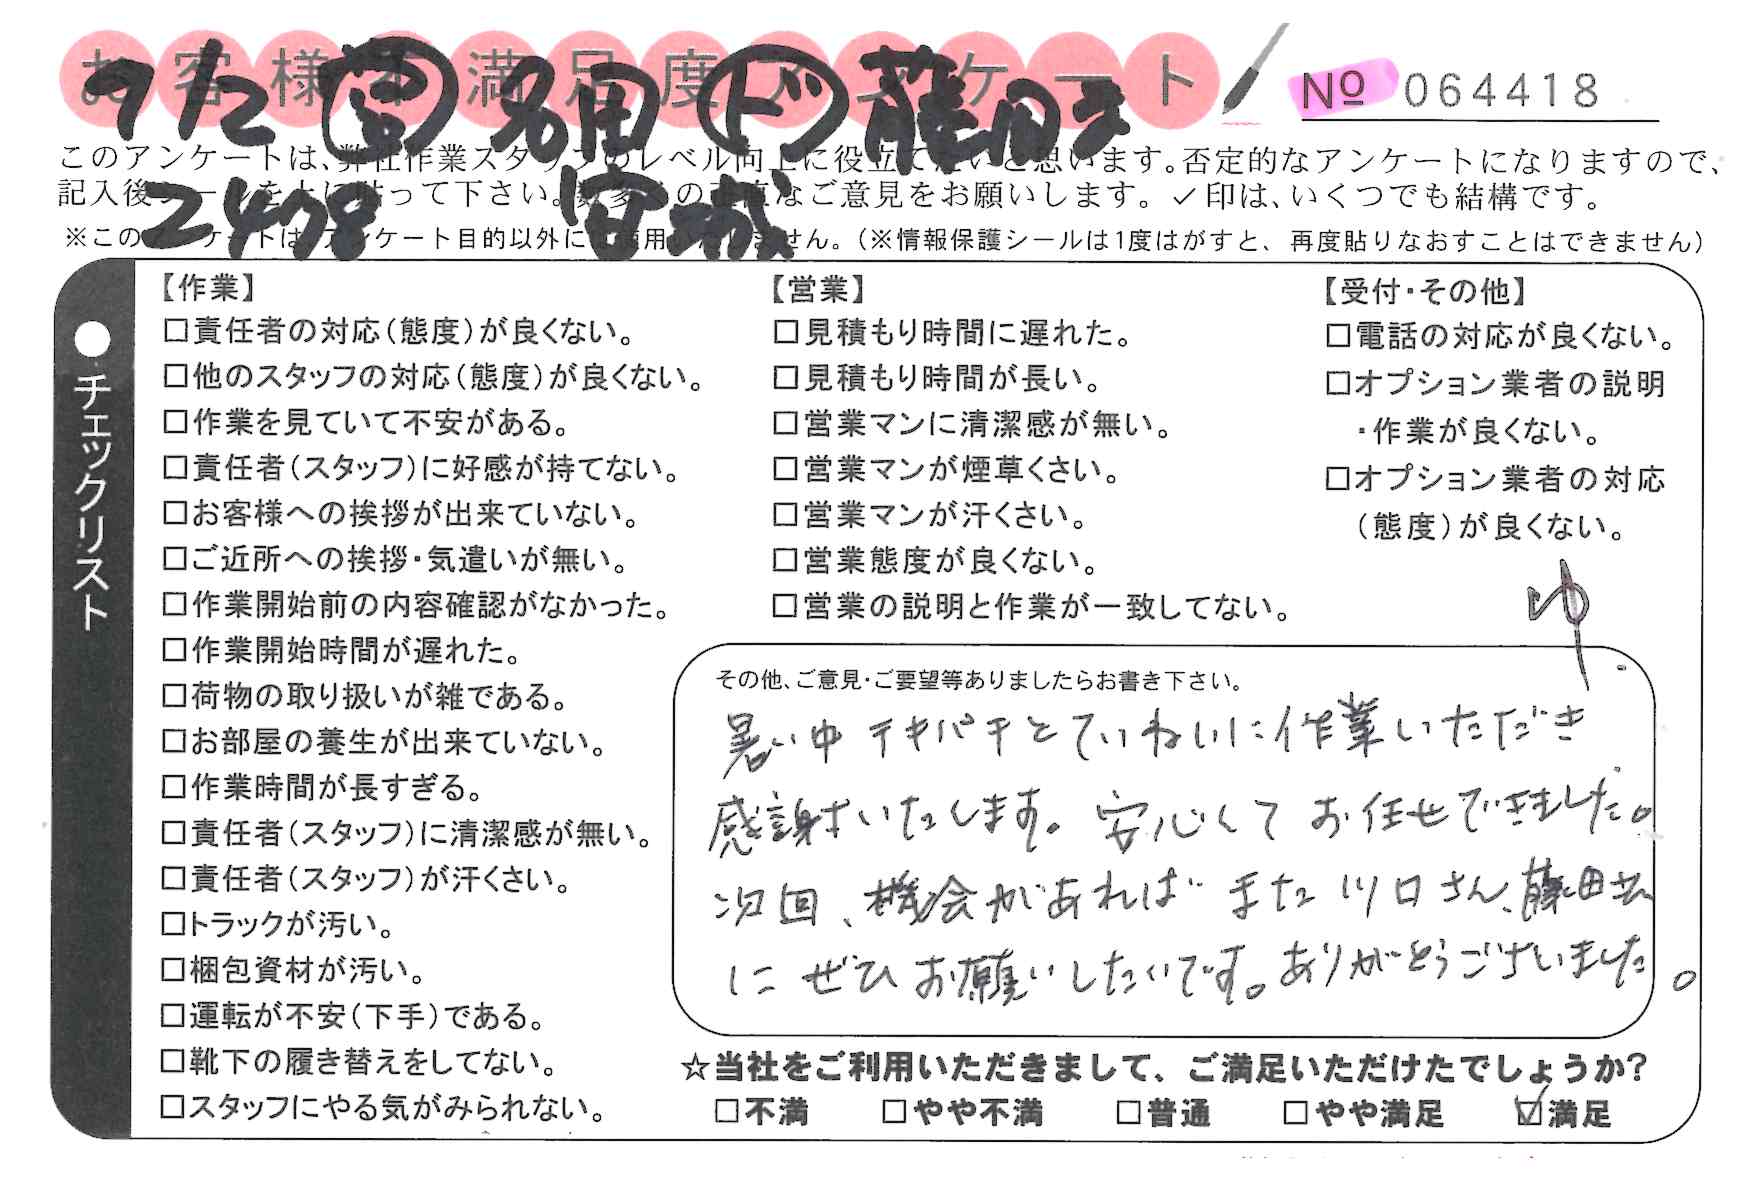 お客様不満足度アンケート
№ 064418
9/2 営 名田 ド 藤田圭
2478 安城
このアンケートは、弊社作業スタッフのレベル向上に役立てたいと思います。否定的なアンケートになりますので、
記入後シールを上に貼って下さい。数多くの正直なご意見をお願いします。✓印は、いくつでも結構です。
※このアンケートは、アンケート目的以外には使用いたしません。(※情報保護シールは1度はがすと、再度貼りなおすことはできません)
●チェックリスト
【作業】
□責任者の対応(態度)が良くない。
□他のスタッフの対応(態度)が良くない。
□作業を見ていて不安がある。
□責任者(スタッフ)に好感が持てない。
□お客様への挨拶が出来ていない。
□ご近所への挨拶・気遣いが無い。
□作業開始前の内容確認がなかった。
□作業開始時間が遅れた。
□荷物の取り扱いが雑である。
□お部屋の養生が出来ていない。
□作業時間が長すぎる。
□責任者(スタッフ)に清潔感が無い。
□責任者(スタッフ)が汗くさい。
□トラックが汚い。
□梱包資材が汚い。
□運転が不安(下手)である。
□靴下の履き替えをしてない。
□スタッフにやる気がみられない。
【営業】
□見積もり時間に遅れた。
□見積もり時間が長い。
□営業マンに清潔感が無い。
□営業マンが煙草くさい。
□営業マンが汗くさい。
□営業態度が良くない。
□営業の説明と作業が一致してない。
【受付・その他】
□電話の対応が良くない。
□オプション業者の説明
・作業が良くない。
□オプション業者の対応
(態度)が良くない。
ゆ
その他、ご意見・ご要望等ありましたらお書き下さい。
暑い中テキパキとていねいに作業いただき
感謝いたします。安心してお任せできました。
次回、機会があればまた川口さん、藤田さん
にぜひお願いしたいです。ありがとうございました。
☆当社をご利用いただきまして、ご満足いただけたでしょうか?
□不満 □やや不満 □普通 □やや満足 ☑満足